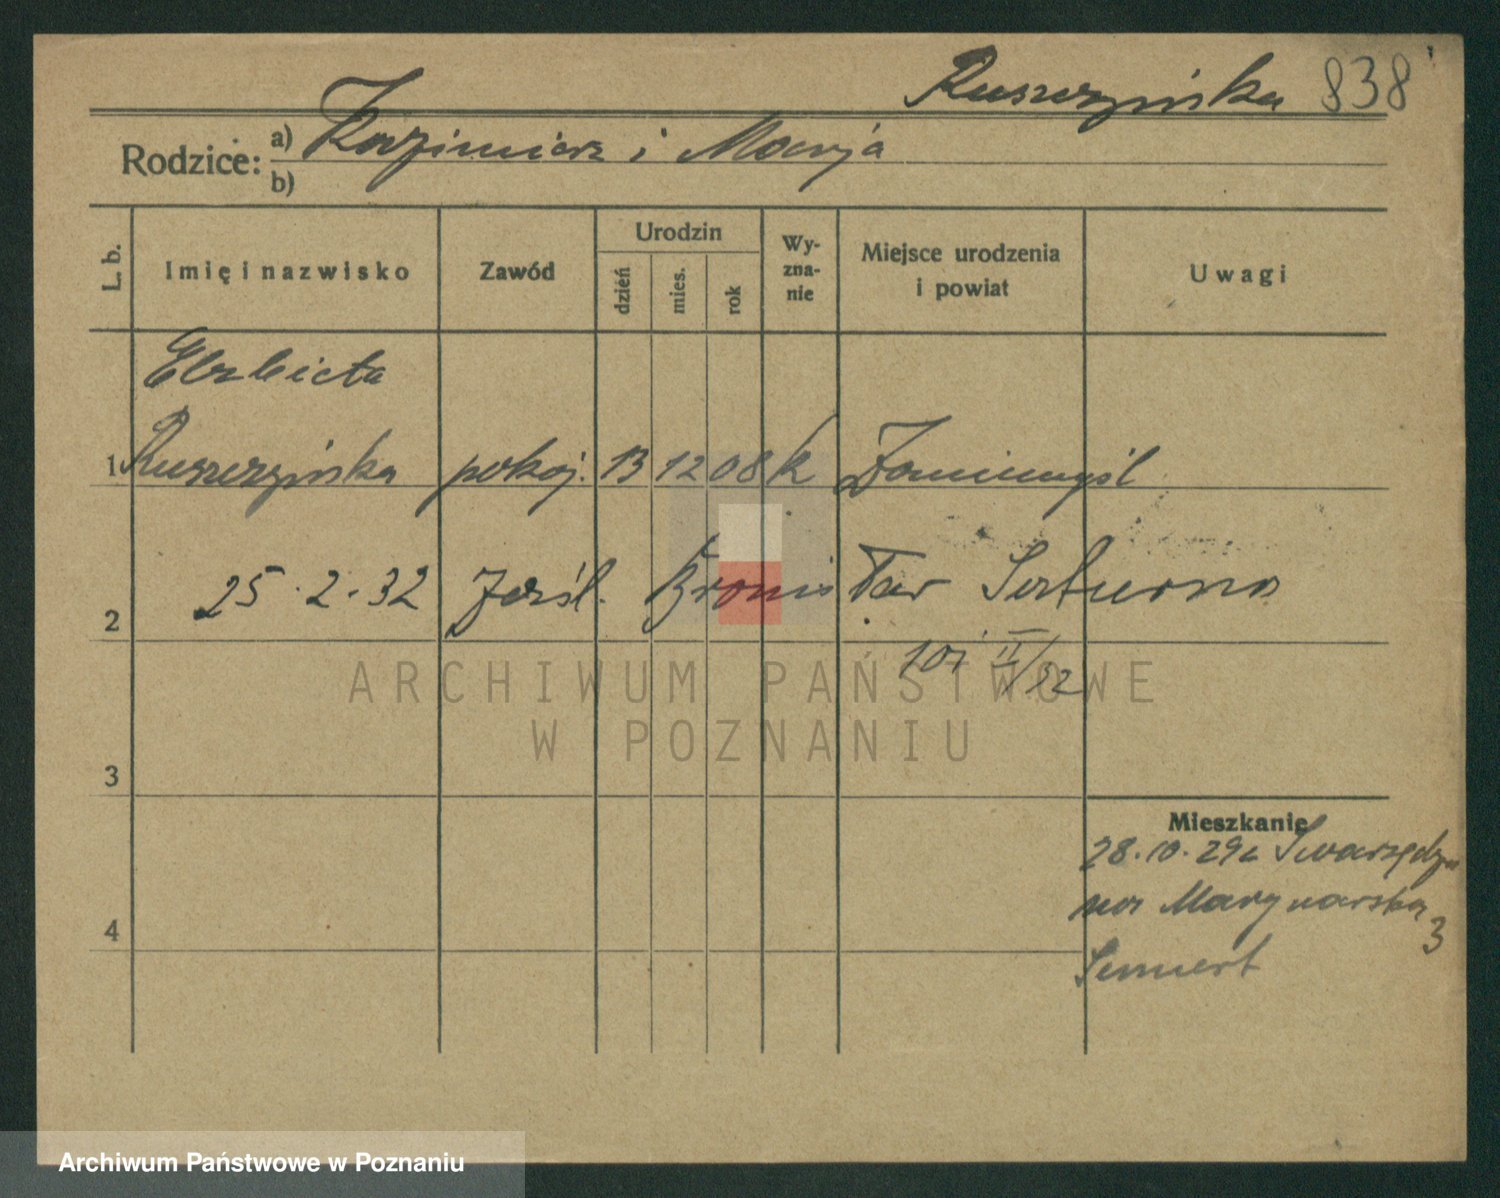 Ruszczyńska 838
Rodzice: a) Kazimierz i Marja
b)
L. b. Imię i nazwisko Zawód Urodzin dzień mies. rok Wy-zna-nie Miejsce urodzenia i powiat Uwagi
Elżbieta
1 Ruszczyńska pokoj. 13 12 08 k
25.2.32 Bronisław
2
101 II/32
3
Mieszkanie
28.10.29 z Swarzędza
4 na Marynarska
3
ARCHIWUM PAŃSTWOWE
W POZNANIU
Archiwum Państwowe w Poznaniu